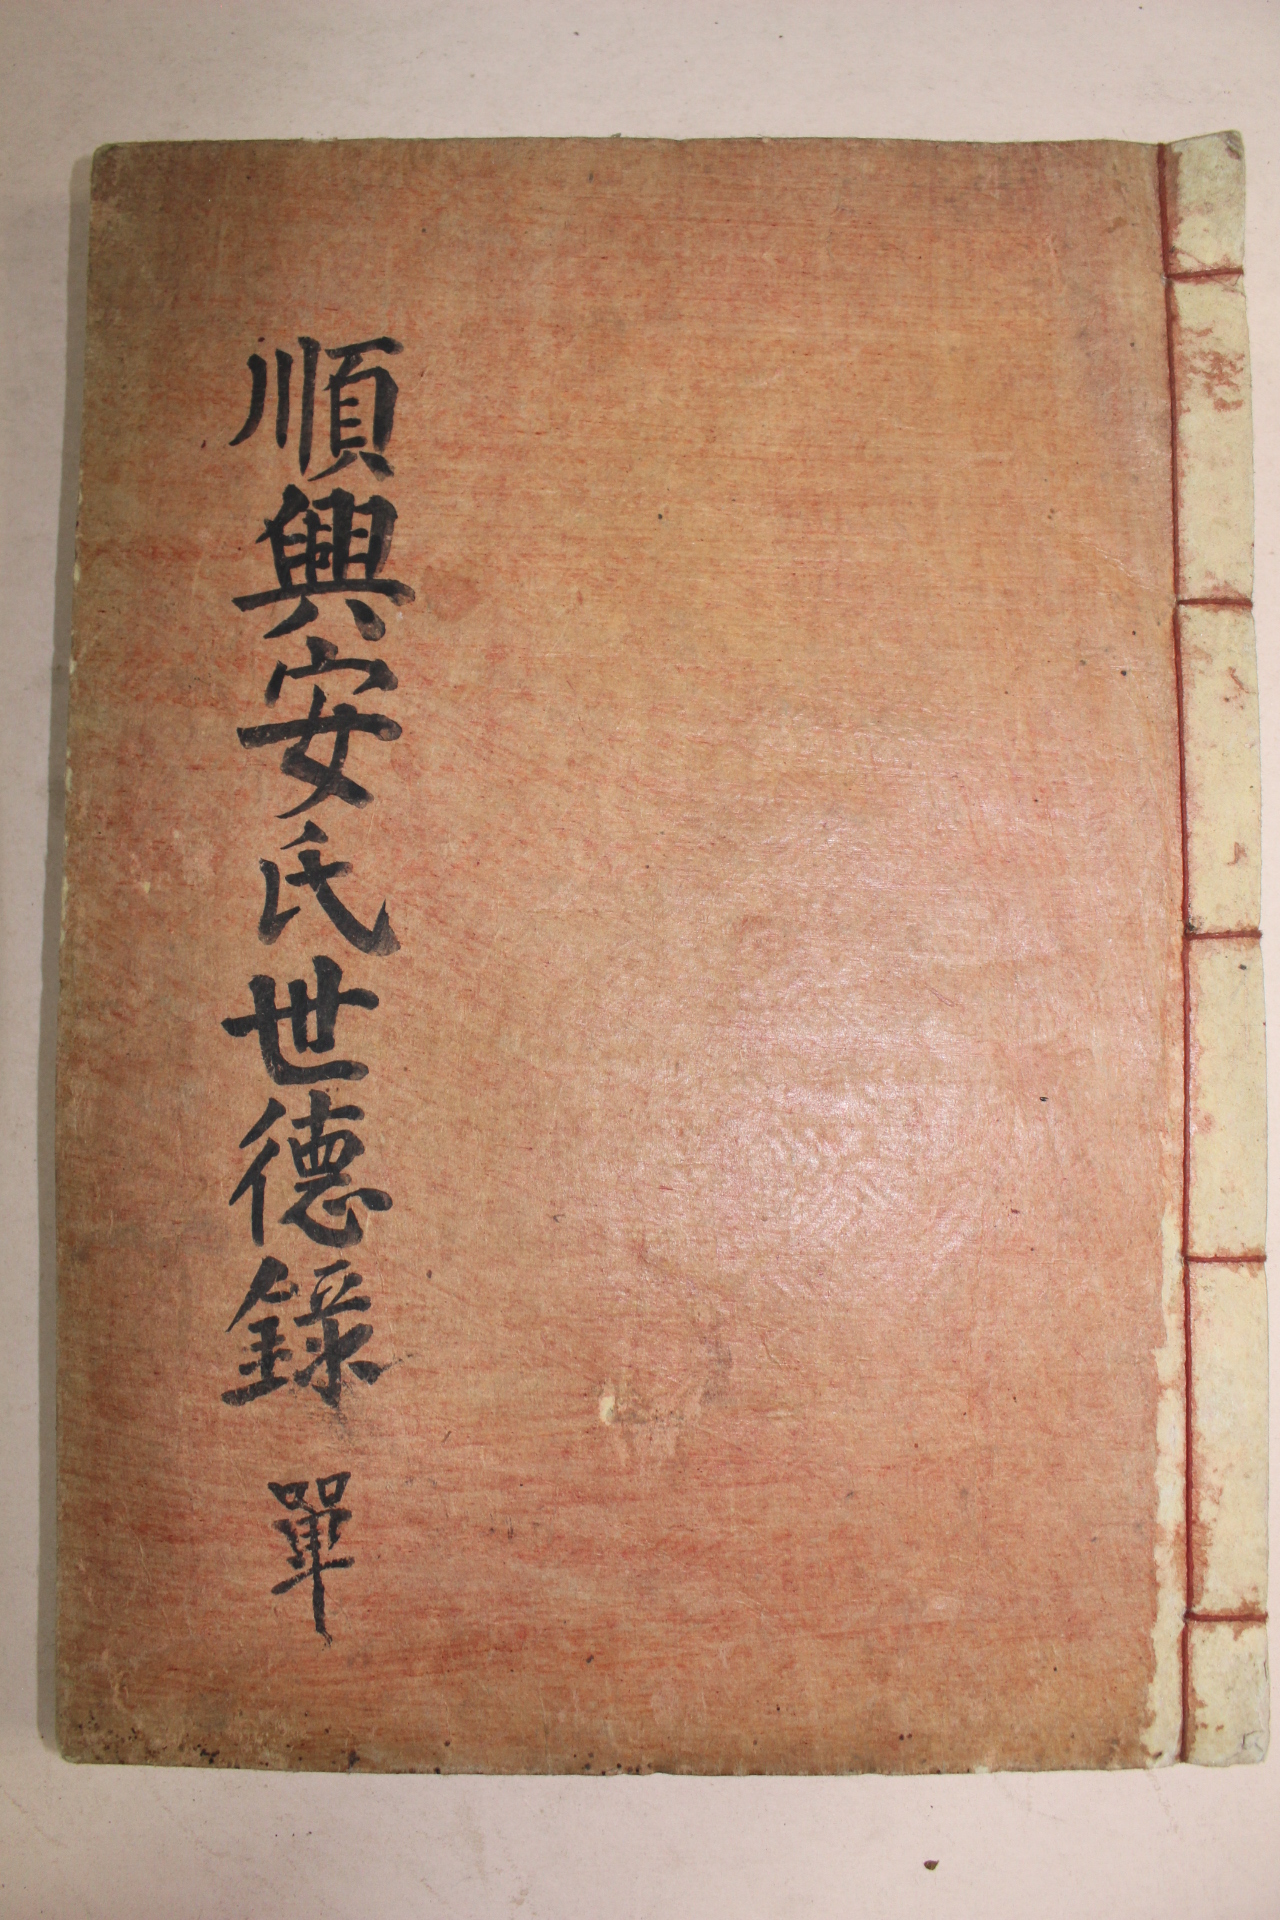 順興安氏世德錄 單